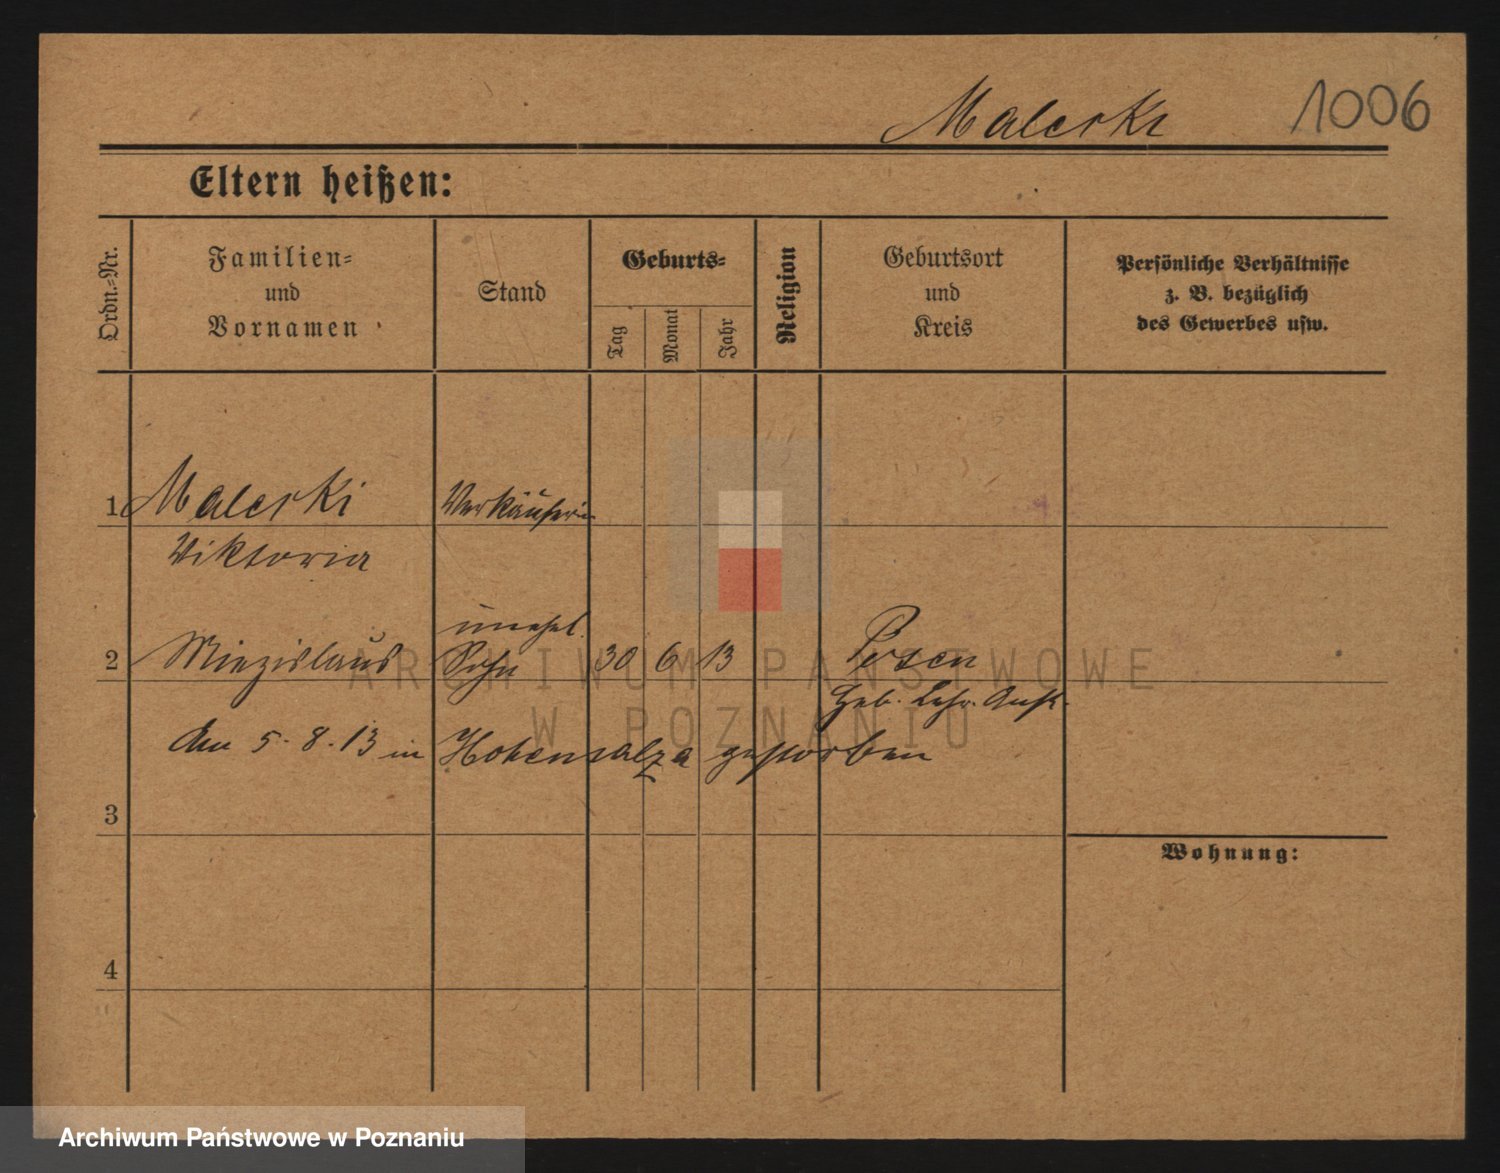 Malerski 1006
Eltern heißen:
Ordn.-Nr.
Familien-
und
Vornamen
Stand
Geburts-
Tag
Monat
Jahr
Religion
Geburtsort
und
Kreis
Persönliche Verhältnisse
z. B. bezüglich
des Gewerbes usw.
1 Malerski Verkäuferin
Viktoria
unehel.
2 Miezislaus Sohn 30 6 13 Posen
Heb. Lehr. Anst.
Am 5.8.13 in Hohensalza gestorben
3
Wohnung:
4
ARCHIWUM PAŃSTWOWE
W POZNANIU
Archiwum Państwowe w Poznaniu